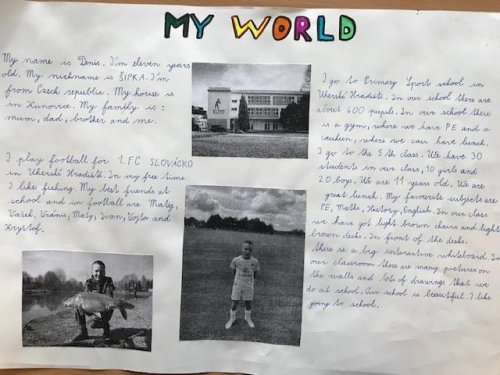 MY WORLD
My name is Denis. I'm eleven years
old. My nickname is ŠIPKA. I'm
from Czech republic. My house is
in Kunovice. My family is:
mum, dad, brother and me.
I play football for 1. FC SLOVÁCKO
in Uherské Hradiště. In my free time
I like fishing. My best friends at
school and in football are Maty,
Vašek, Maty, Ivan, Vojta and
Kryštof.
I go to Primary Sport school in
Uherské Hradiště. In our school there are
about 600 pupils. In our school there
is a gym, where we have PE and a
where we can have lunch.
I go to the 5th class. We have 30
students in our class, 10 girls and
20 boys. We are 11 years old. We are
great bunch. My favourite subjects are
PE, Maths, History, English. In our class
we have got light brown chairs and light
brown desks. In front of the desks
there is a big interactive whiteboard. In
our classroom there are many pictures on
the walls and lots of drawings that we
do at school. Our school is beautiful. I like
going to school.